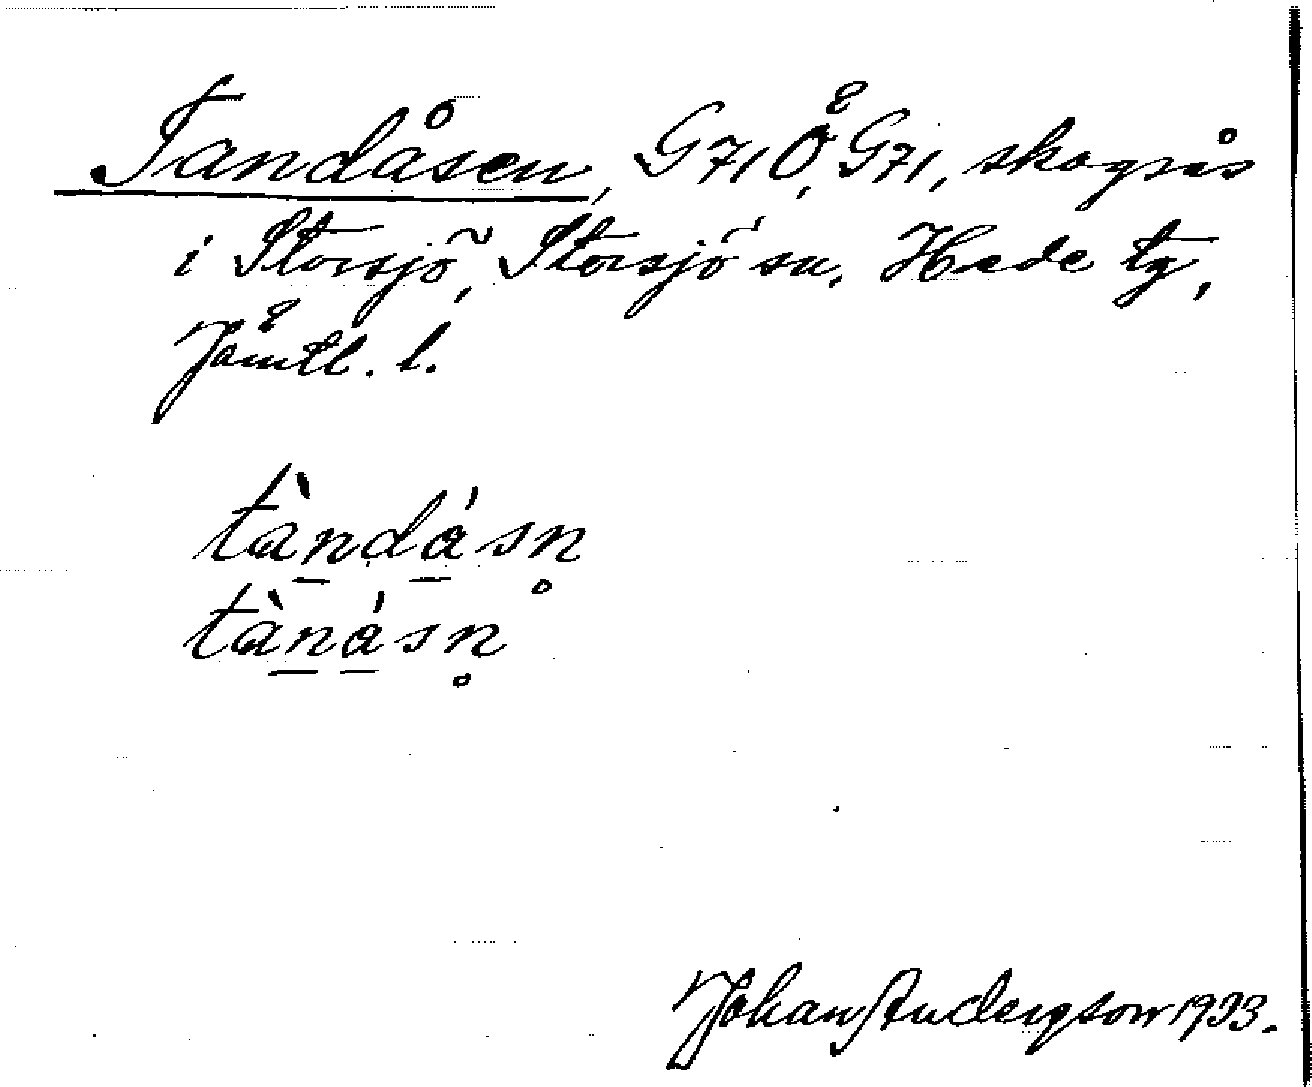 Tandåsen, G71, Ö G71, skogsås
i Storsjö, Storsjö sn, Hede tg,
Jämtl. l.
tàndásn̥
tànásn̥
Johan Anderson 1933.